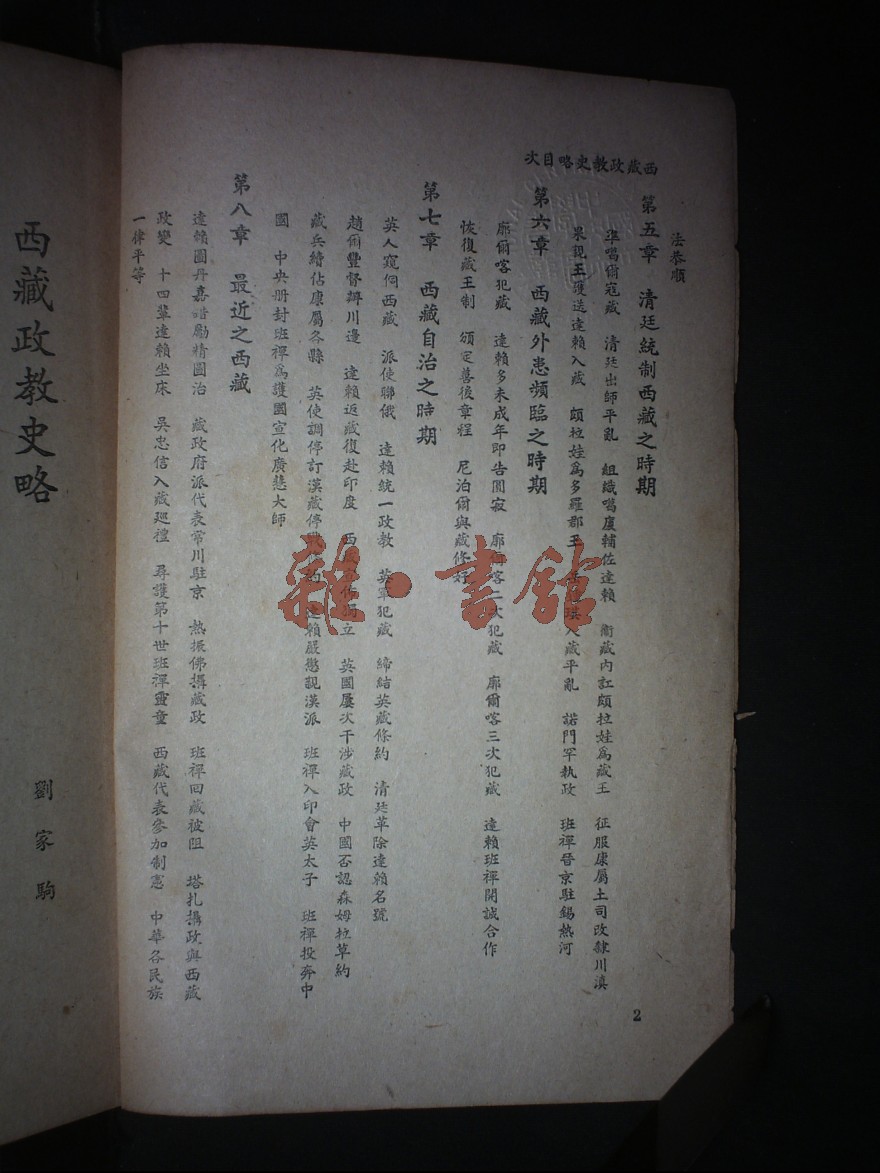 西藏政教史略目次
法恭順
第五章 清廷統制西藏之時期
準噶爾寇藏 清廷出師平亂 組織噶廈輔佐達賴 衛藏內訌頗拉娃為藏王 征服康屬土司改隸川滇
果親王護送達賴入藏 頗拉娃為多羅郡王 入藏平亂 諾門罕執政 班禪晉京駐錫熱河
第六章 西藏外患頻臨之時期
廓爾喀犯藏 達賴多未成年即告圓寂 廓爾喀二次犯藏 廓爾喀三次犯藏 達賴班禪開誠合作
恢復藏王制 頒定善後章程 尼泊爾與藏修好
第七章 西藏自治之時期
英人窺伺西藏 派使聯俄 達賴統一政教 英軍犯藏 締結英藏條約 清廷革除達賴名號
趙爾豐督辦川邊 達賴返藏復赴印度 西藏 獨立 英國屢次干涉藏政 中國否認森姆拉草約
藏兵續佔康屬各縣 英使調停訂漢藏停戰 達賴嚴懲親漢派 班禪入印會英太子 班禪投奔中
國 中央冊封班禪為護國宣化廣慧大師
第八章 最近之西藏
達賴圖丹嘉諧勵精圖治 藏政府派代表常川駐京 熱振佛攝藏政 班禪回藏被阻 塔扎攝政與西藏
政變 十四輩達賴坐床 吳忠信入藏巡禮 尋護第十世班禪靈童 西藏代表參加制憲 中華各民族
一律平等
2
雜·書館
西藏政教史略
劉家駒